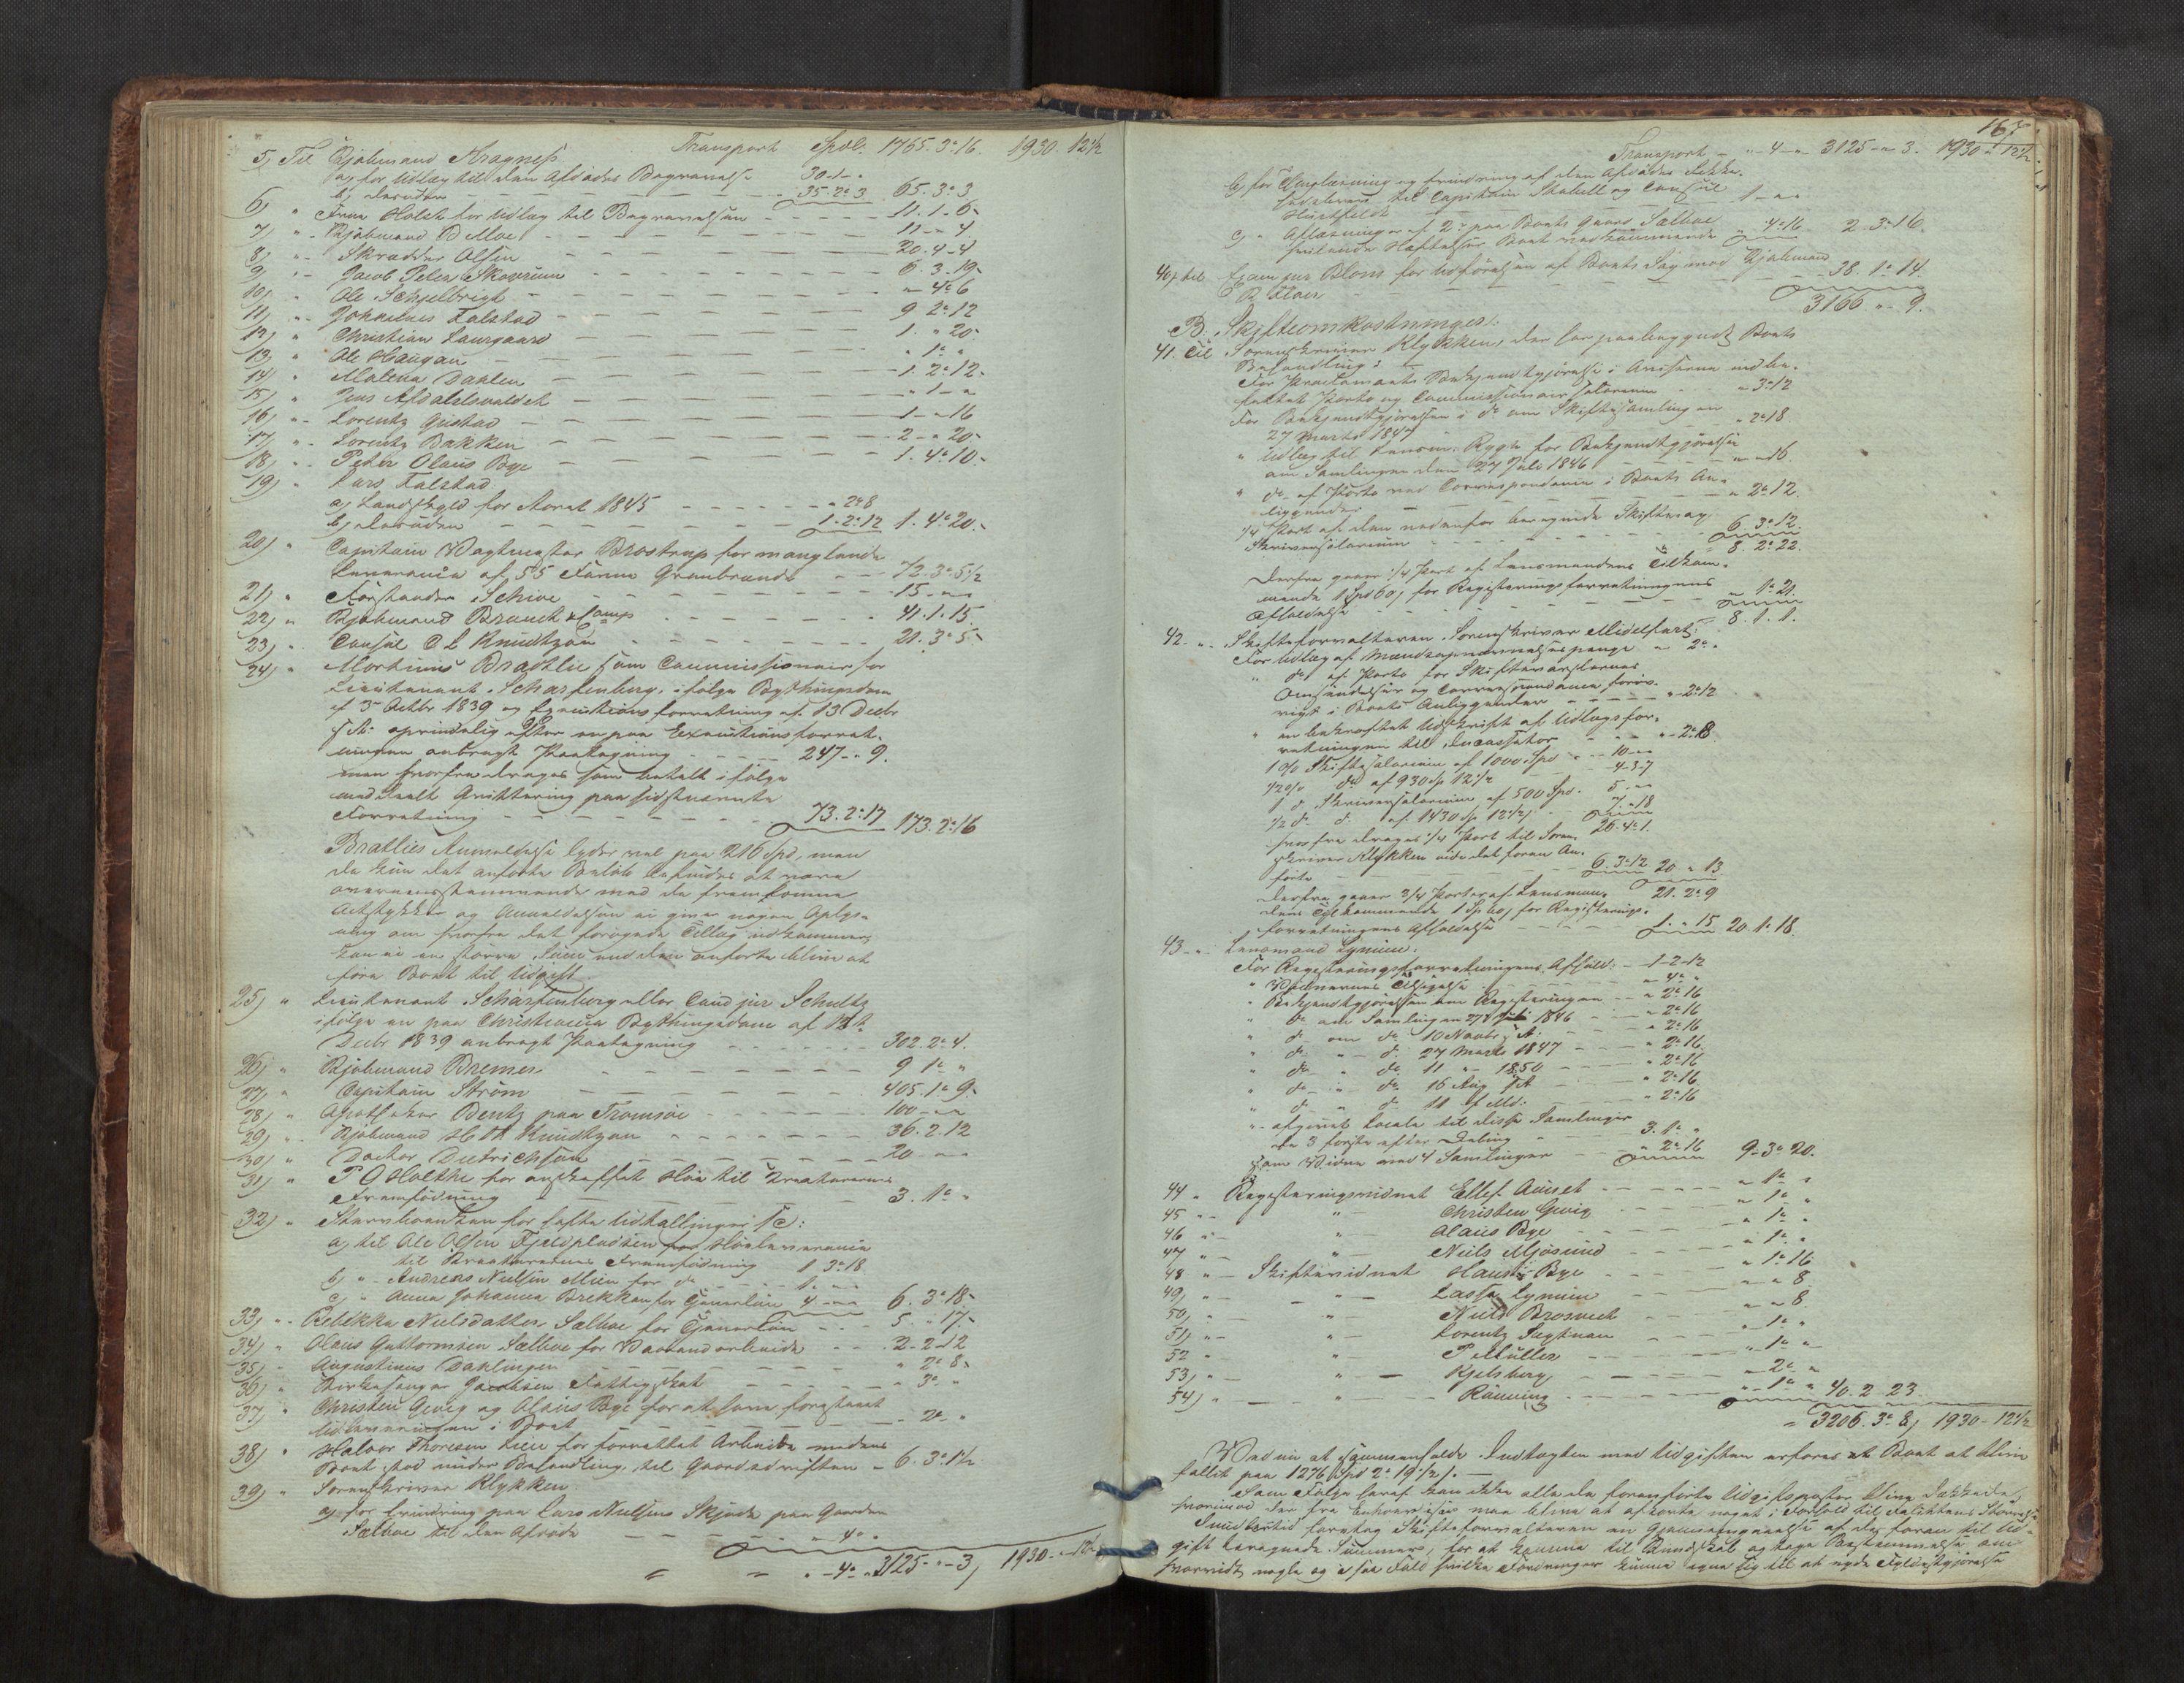 Transport Spdl. 1765. 3. 16. 1930. 12½
5) Til Kjøbmand Aragness
a, for Udlæg til den Afdødes Begravelse 30. 1 - "
b, desuden 35. 2. 3 65. 3. 3
6) " Frue Holst for Udlæg til Begravelsen 11. 1. 6
7) " Kjøbmand B Moe 11 - " 4
8) " Skrædder Olsen 20. 4. 4
9) " Jacob Peter Skavrum 6. 3. 19
10) " Ole Schjelbrigt " 4. 6
11) " Johannes Falstad 9 2. 12
12) " Christian Laurgaard 1. " 20
13) " Ole Haugan " 1 "
14) " Malena Dahlen 1. 2. 12
15) " Jens Afdalsvaldet " 1 - "
16) " Lorentz Gustad 1 - " 16
17) " Lorentz Bakken 2 - " 20
18) " Peter Olaus Bye 1. 4. 10
19) " Lars Falstad
a, Landskyld for Aaret 1845 " 2. 8
b, desuden 1. 2. 12 1. 4. 20
20) " Capitain Vagtmester Brostrup for manglende
Leverance af 55 Favne Granbrænde 72. 3. 5½
21) " Forstander Schive 15 - " "
22) " Kjøbmand Brandt & Comp 41. 1. 15
23) " Consul C L Knudtzon 21. 3. 5
24) " Mortinus Brathlie som Commissionair for
Lieutenant Scharfenberg, ifølge Bythingsdom
af 3 Octbr 1839 og Executionsforretning af 13 Decbr
s. A. oprindelig efter en paa Executionsforret-
ningen anbragt Paategning 247 - " 9.
men hvorfra drages som betalt ifølge
meddeelt Qvittering paa sidstnævnte
Forretning 73. 2. 17 173. 2. 16
Brathlies Anmeldelse lyder vel paa 216 Spd, men
da kun det anførte Beløb befindes at være
overeensstemmende med de fremkomne
Actstykker og Anmeldelsen ei giver nogen Oplys-
ning om hvorfra det forøgede Tillæg udkommer,
kan ei en større Sum end den anførte blive at
føre Boet til Udgift
25) " Lieutenant Scharfenberg eller Cand jur Schultz
ifølge en paa Christiania Bythingsdom af 12te
Decbr 1839 anbragt Paategning 302. 2. 4.
26) " Kjøbmand Bremer 9 1 "
27) " Capitain Strøm 405. 1. 9
28) " Apotheker Bentz paa Tromsøe 100 - " "
29) " Kjøbmand H Th Knudtzon 36. 2. 12
30) " Doctor Dietrichson 20 - " "
31) " P O Holthe for anskaffet Høe til Kreaturernes
Fremfødning 3. 1. "
32) " Skarvhoensen for hafte Udtællinger /c:
a, til Ole Olsen Fjeldpladsen for Høeleverance
til Kreaturernes Fremfødning 1 3. 18
b, " Andreas Nielsen Moen for do 1. " "
c, " Anna Johanna Brekken for Tjenerløn 4 - " " 6. 3. 18
33) " Rebekka Nielsdatter Salboe for Tjenerløn 5. " 17
34) " Olaus Guttormsen Salboe for Vaaraandsarbeide 2. 2. 12
35) " Augustinus Dahlingen " 2. 8
36) " Kirkesanger Jacobsen Fattigskat " 3. "
37) " Christen Gevig og Olaus Bye for at have forestaaet
Udskiftningen i Boet " 2. "
38) " Halvor Thoresen Lien for forrettet Arbeide medens
Boet stod under Behandling, til Gaardsdriften 6. 3. 1½
39) " Sorenskriver Klykken
a, for Erindring paa Lars Nielsens Skjøde paa Gaarden
Salboe til den Afdøde " 4 "
" 4 " 3125 - " - 3, 1930 - " 12½
167
Transport " 4 - " 3125 - " 3. 1930 - " 12½
b, for Tinglæsning og Erindring af den Afdødes Pante-
Udstedelse til Capitain Stabell og Consul
Huitfeldt 1 - " "
c, " Aflæsninger af 2 paa Boets Gaard Salboe
hvilende Hæftelser Boet vedkommende " 4. 16 2. 3. 16
40, til Exam jur Blom for Udførelsen af Boets Sag mod Kjøbmand
B Floer 38. 1. 14.
3166 " - 9.
B. Skifteomkostninger:
41. Til Sorenskriver Klykken, der har paabegyndt Boets
Behandling:
For Proclamaets Bekjendtgjørelse i Aviserne indbe-
fattet Porto og Commissionairsalarium " 3. 12
For Bekjendtgjørelsen i do om Skiftesamlingen
27 Marts 1847 " 2. 18
" Udlæg til Lensm: Rygh for Bekjendtgjørelse
om Samlingen den 27 Juli 1846 " - 16
" do af Porto ved Correspondence i Boets An-
liggender " 2. 12
¼ Part af den nedenfor beregnede Skifte og
Skriversalarium 6. 3. 12
8. 2. 22.
Derfra gaaer ¼ Part af Lensmandens Tilkom-
mende 1 Spd 60, for Registreringsforretningens
Afholdelse " 1. 21
8. 1. 1.
42 - " Skifteforvalteren Sorenskriver Midelfart:
For Udlæg af Mandsopnævnelsespenge " 2. "
" do af Porto for Skiftevarslernes
Omsendelse og Correspondance forøv-
rigt i Boets Anliggender " 2. 12
" en bekræftet Udskrift af Udlægsfor-
retningen til Incassator " 2. 8
1 o/o Skiftesalarium af 1000 Spd 10 - "
½ o/o do af 930 Sp 12½ 4. 3. 7
1 d. Skriversalarium af 500 Spd. 5 - "
½ d. d. af 1430 Sp 12½ 7. " 18
26. 4. 1.
hvorfra drages ¼ Part til Soren-
skriver Klykken vide det foran An-
førte 6. 3. 12 20 " 13
21. 2. 9
Derfra gaaer ¾ Parter af Lensman-
dens Tilkommende 1 Sp 60, for Registrerings-
forretningens Afholdelse 1. " 15 20. 1. 18.
43 - " Lensmand Lynum:
For Registreringsforretningens Afhold: 1. 2. 12
" Vidnernes Tilsigelse " 4 "
" Bekjendtgjørelsen om Registreringen " 2. 16
" do om Samlingen 27 Juli 1846 " 2. 16
" do om do 10 Novbr s. A: " 2. 16
" do " d. 27 Marts 1847 " 2. 16
" do " do 11 " 1850 " 2. 16
" do " do 16 Aug s. A " 2. 16
" do " d. 11 " 2. 16
" afgivet Locale til disse Samlinger
de 3 første efter Deling 3. 1. "
som Vidne ved 4 Samlinger " 2. 16 9. 3. 20.
44 " Registreringsvidnet Ellef Aunet " 1 "
45 " " Christen Gevig " 1 "
46 " " Olaus Bye " 1 "
47 " " Niels Mjøsund " 1 "
48 " Skiftevidnet Hans Bye " 1. 16
49, " " Lasse Lynum " " 8
50, " " Niels Brosveet " " 8.
51, " " Lorentz Sagtnan " 1 "
52 " " P Müller " 1 "
53, " " Kjelsberg " 2 "
54, " " Rønning " 1 " 40. 2 23.
3206. 3. 8, 1930 - 12½
Ved nu at sammenholde Indtægten med Udgiften erfares at Boet at blive
fallit paa 1276 Spd 2. 19½ /.
Som Følge heraf kan ikke alle de foranførte Udgiftsposter blive dækkede,
hvorimod der fra Enhver især maa blive at afkorte noget i Forhold til Fallittens Størrelse
Imidlertid foretog Skifteforvalteren en Gjennemgaaelse af de foran til Ud-
gift beregnede Summer, for at komme til Kundskab og tage Bestemmelse om
hvorvidt nogle og i saa Fald hvilke Fordringer kunne egne sig til at nyde Fyldestgjørelse